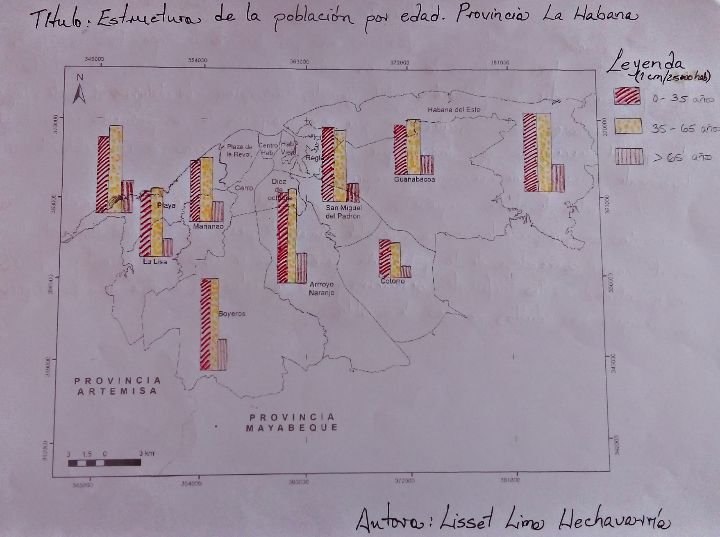 Título: Estructura de la población por edad. Provincia La Habana
Leyenda
(1 cm/25000 hab)
0-35 años
35-65 años
>65 años
345000 354000 363000 372000 381000
N
Habana del Este
Plaza de
la Revo.
Centro
Hab.
Hab.
Vieja
Regla
Guanabacoa
Cerro
Diez
de
octubre
Playa
San Miguel
del Padrón
Marianao
La Lisa
Cotorro
Arroyo
Naranjo
Boyeros
PROVINCIA
ARTEMISA
PROVINCIA
MAYABEQUE
3 1,5 0 3 km
345000 354000 363000 372000 381000
Autora: Lisset Lima Hechavarría